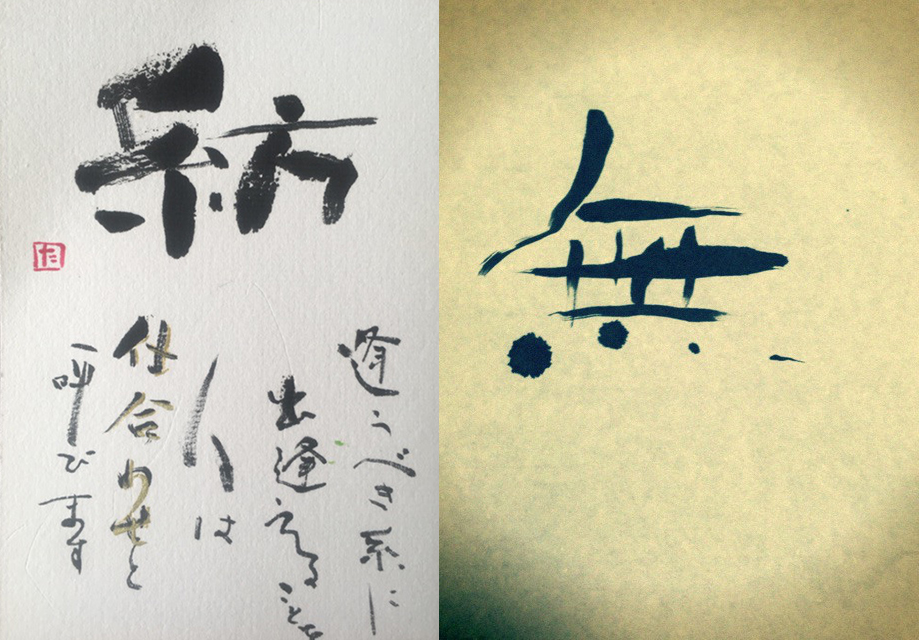 紡
た
逢うべき糸に
出逢えることを
人は
仕合わせと
呼びます
無